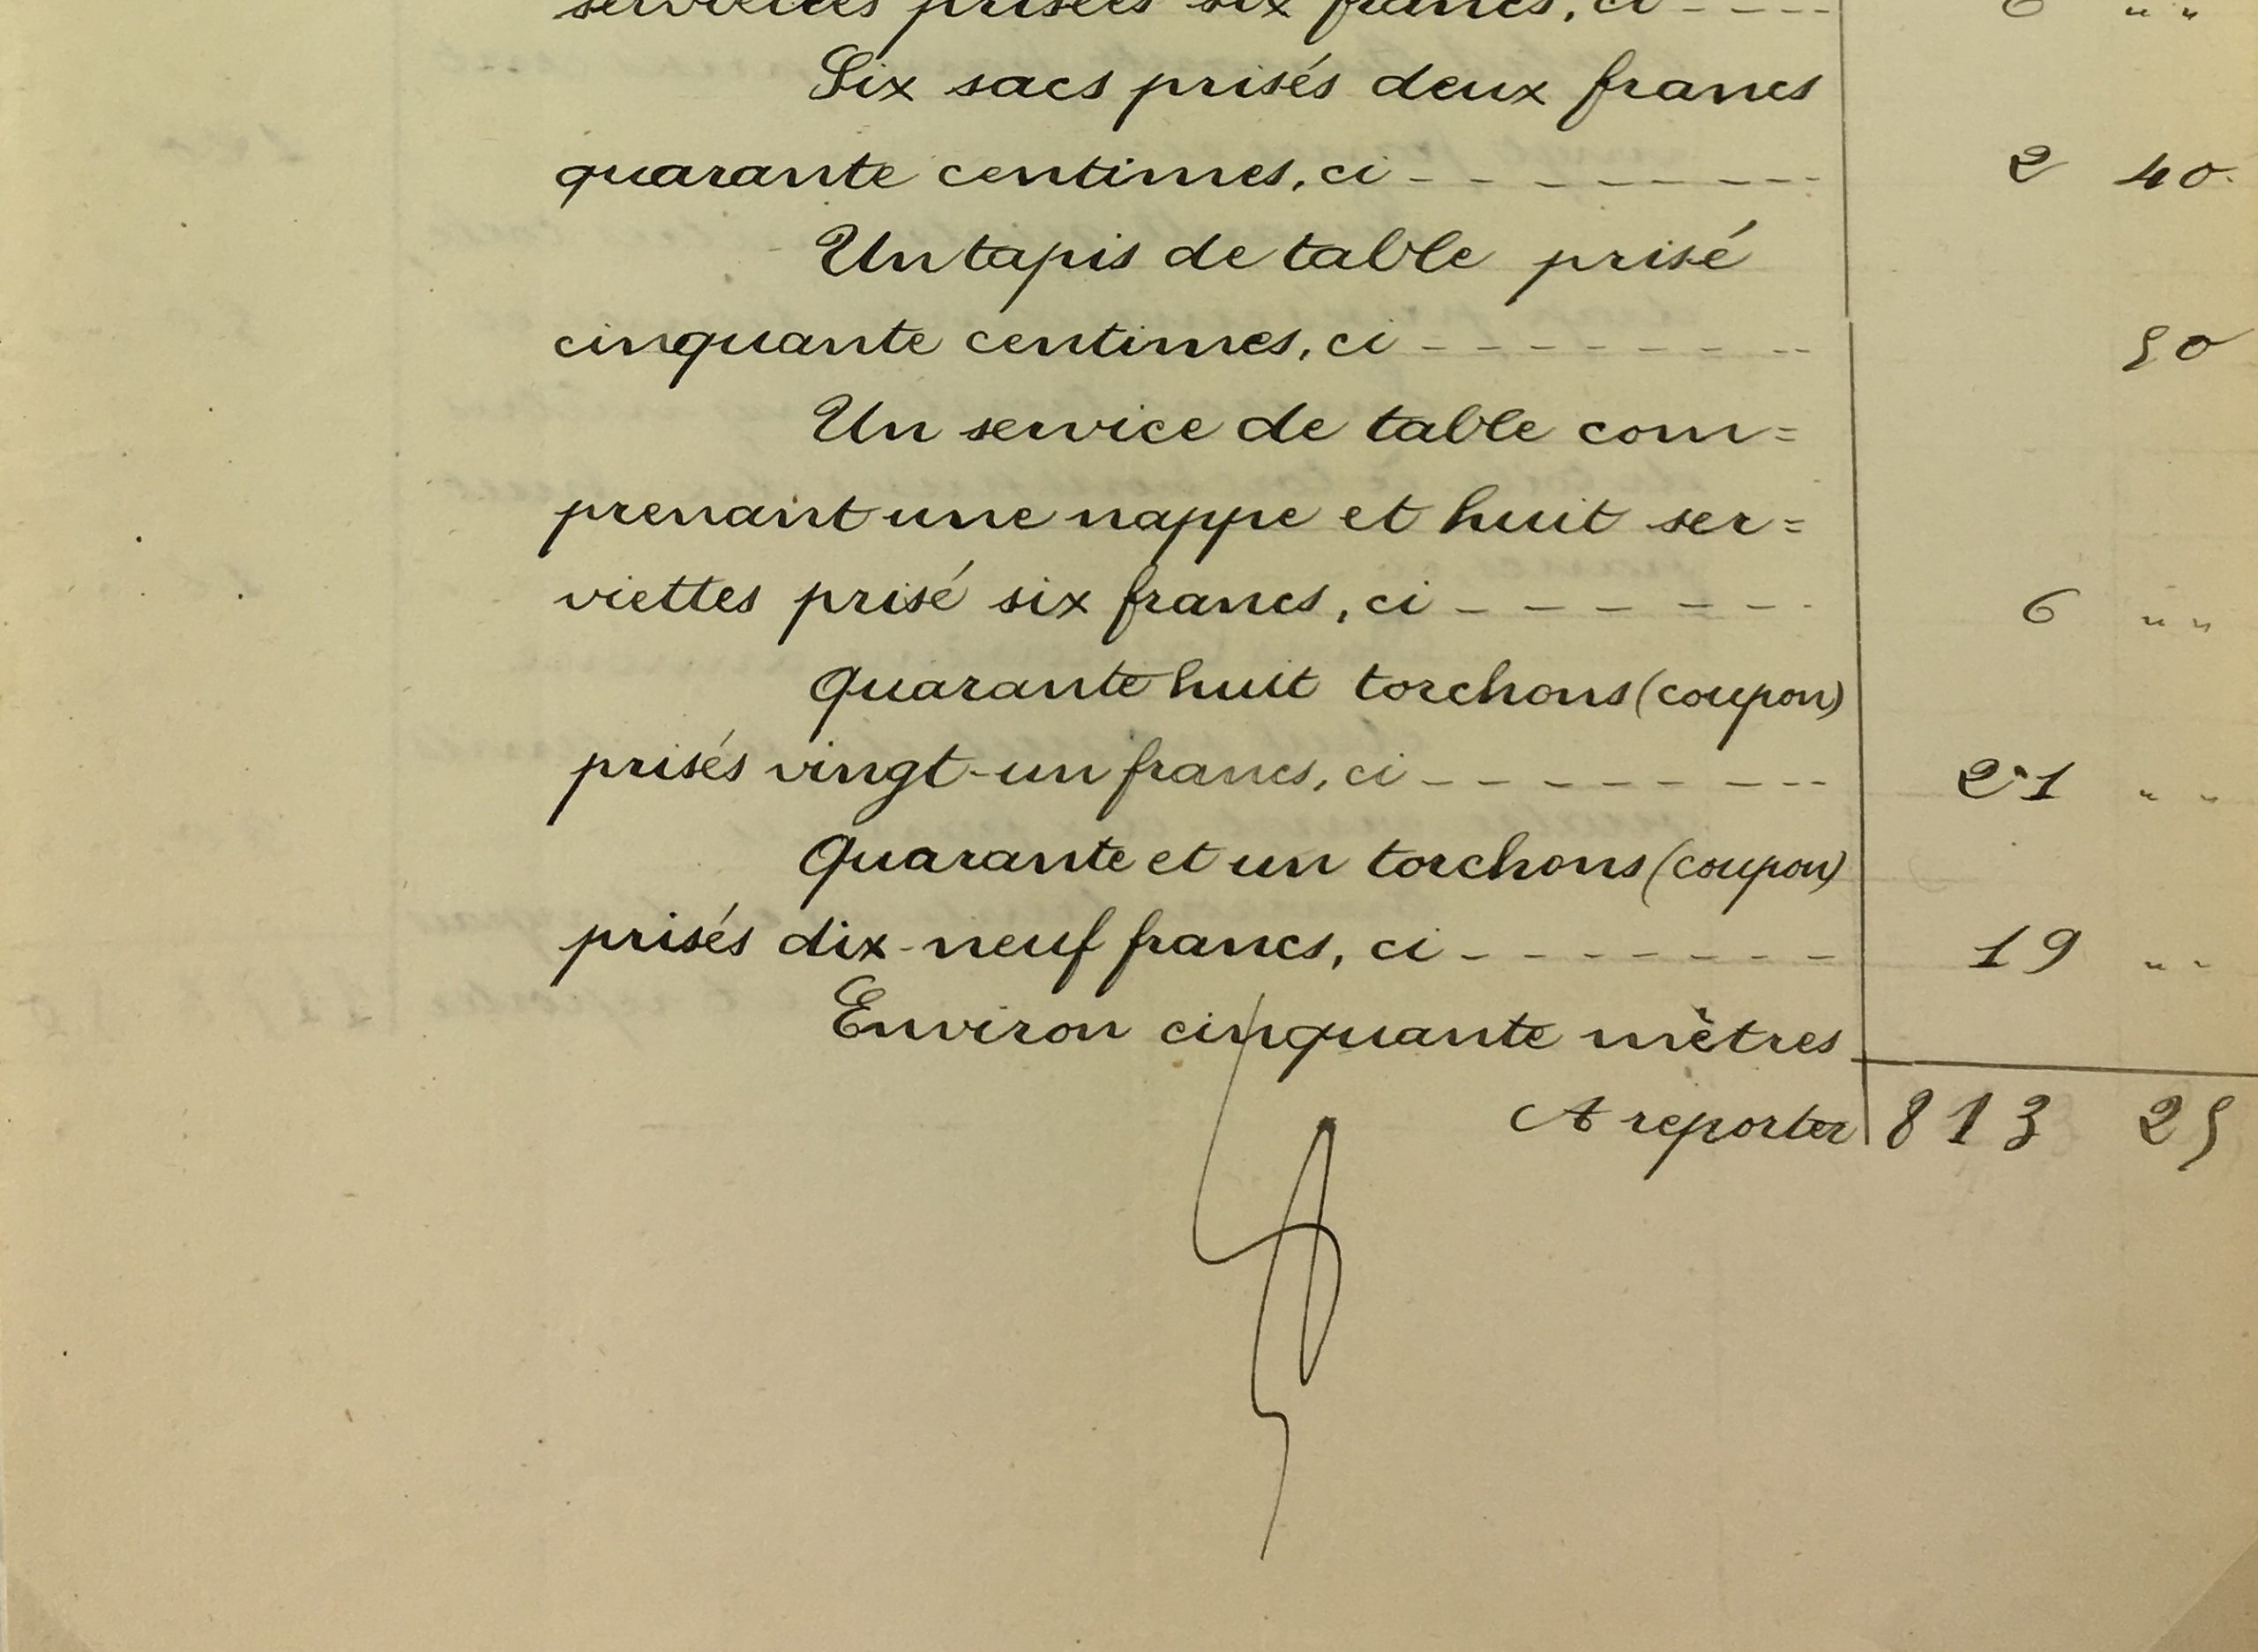 serviettes prisées six francs, ci - - - - 6 " "
Six sacs prisés deux francs
quarante centimes, ci - - - - - - - - 2 40
Un tapis de table prisé
cinquante centimes, ci - - - - - - - - 50
Un service de table com=
prenant une nappe et huit ser=
viettes prisé six francs, ci - - - - - - 6 " "
Quarante huit torchons (coupon)
prisés vingt-un francs, ci - - - - - - - - 21 " "
Quarante et un torchons (coupon)
prisés dix-neuf francs, ci - - - - - - - 19 " "
Environ cinquante mètres
A reporter 813 25